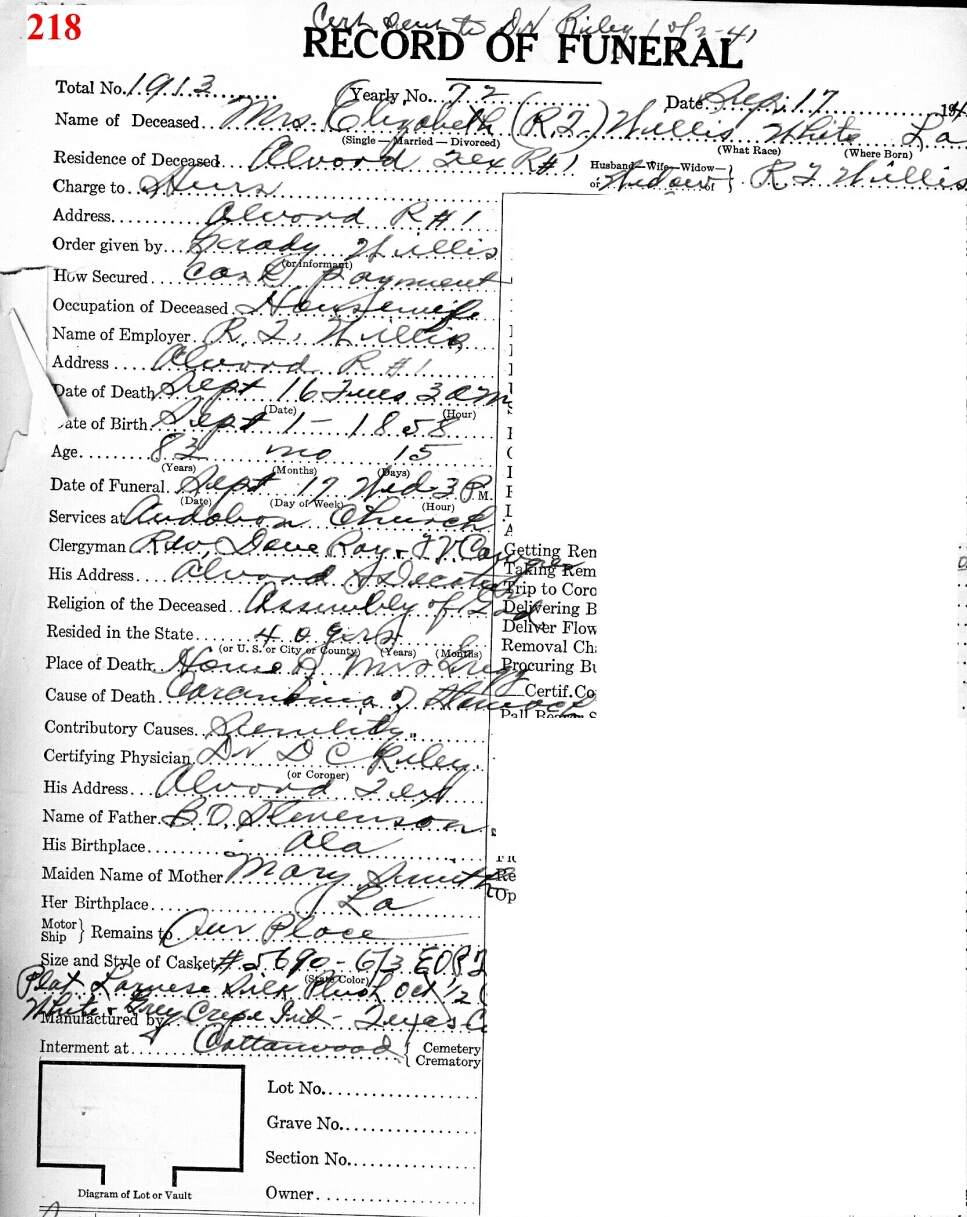 218
Cert sent to Dr Riley 10/2-41
RECORD OF FUNERAL
Total No. 1913 Yearly No. 72 Date Sep. 17 194
Name of Deceased Mrs. Elizabeth (R.T.) Willis White La
(Single — Married — Divorced) (What Race) (Where Born)
Residence of Deceased Alvord Tex R#1 Husband—Wife—Widow— or Widow of } R T Willis
Charge to Heirs
Address Alvord R#1
Order given by Grady Willis
(or Informant)
How Secured Cash payment
Occupation of Deceased Housewife
Name of Employer R. T. Willis
Address Alvord R#1
Date of Death Sept 16 Tues 3 am
(Date) (Hour)
ate of Birth Sept 1 - 1858
Age 83 mo 15
(Years) (Months) (Days)
Date of Funeral Sept 17 Wed 3 P.M.
(Date) (Day of Week) (Hour)
Services at Audobon Church
Clergyman Rev. Dave Ray & T V
Getting Ren
His Address Alvord & Decatur
Taking Rem
Trip to Coro
Religion of the Deceased Assembly of God
Delivering B
Deliver Flow
Resided in the State 40 yrs
(or U. S. or City or County) (Years) (Months)
Removal Cha
Place of Death Home of Mrs
Procuring Bu
Certif. Co
Cause of Death of Stomach
Contributory Causes Senility
Certifying Physician Dr D C Riley
(or Coroner)
His Address Alvord Tex
Name of Father B. D. Stevenson
His Birthplace Ala
Maiden Name of Mother Mary Smith
Re
Op
Her Birthplace La
Motor Ship } Remains to Our Place
Size and Style of Casket #5690 - 6/3
(State Color)
Silk Plush Oct 1/2
White & Grey Crepe Int - Texas C
Manufactured by
Interment at Cottonwood { Cemetery Crematory
Lot No.
Grave No.
Section No.
Owner
Diagram of Lot or Vault